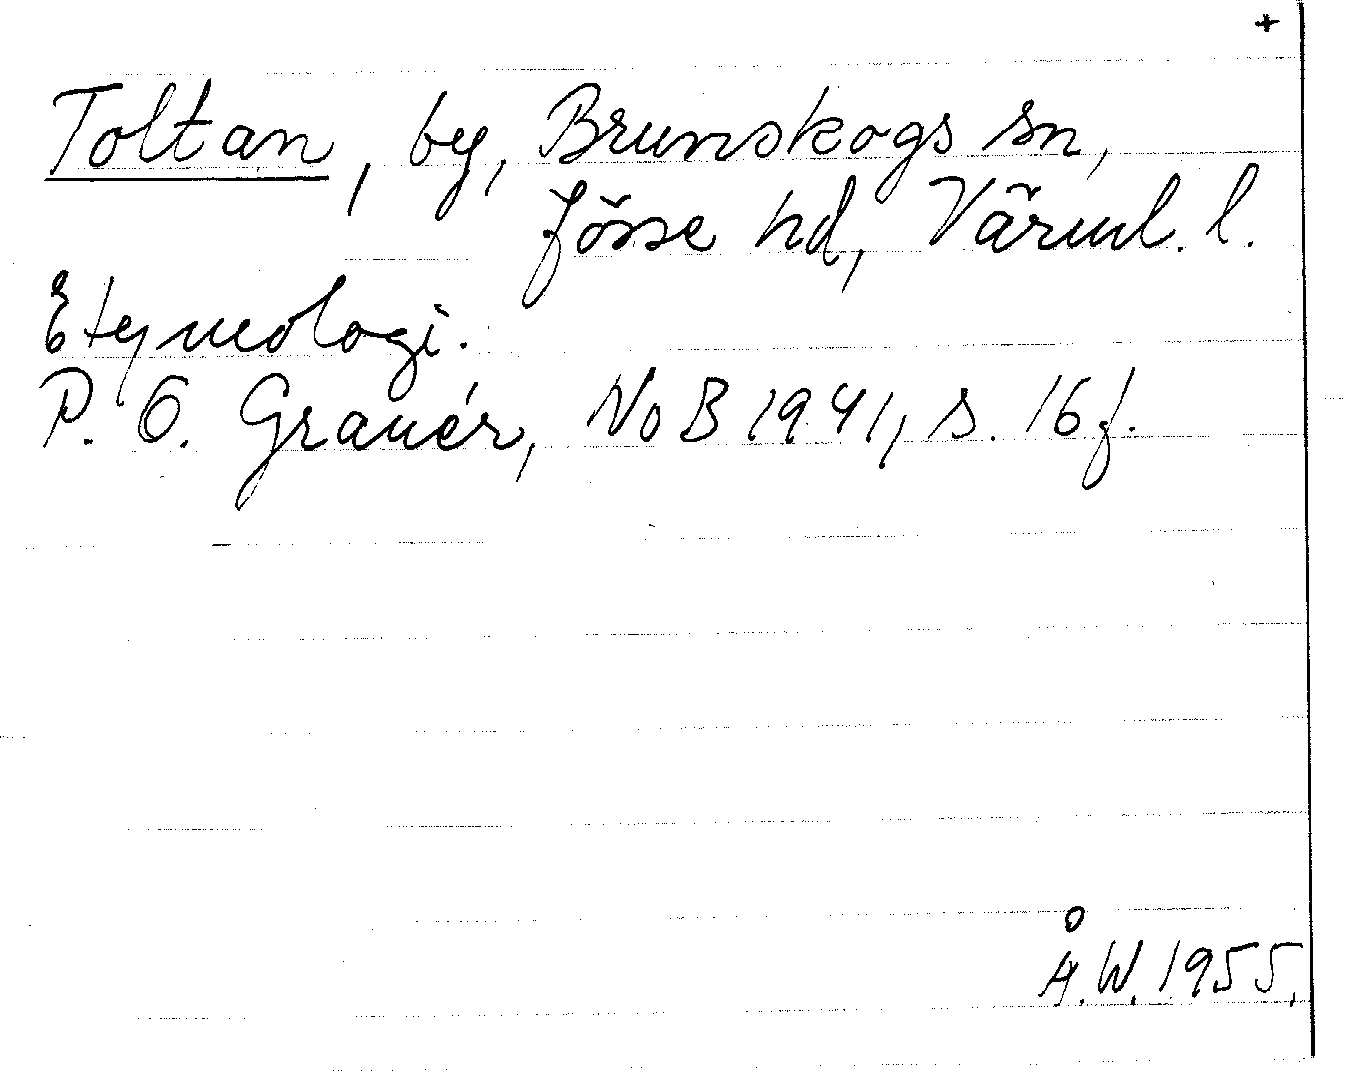 +
Toltan, by, Brunskogs sn,
Jösse hd, Värml. l.
Etymologi.
P. O. Granér, NoB 1941, s. 16 f.
Å.W. 1955.